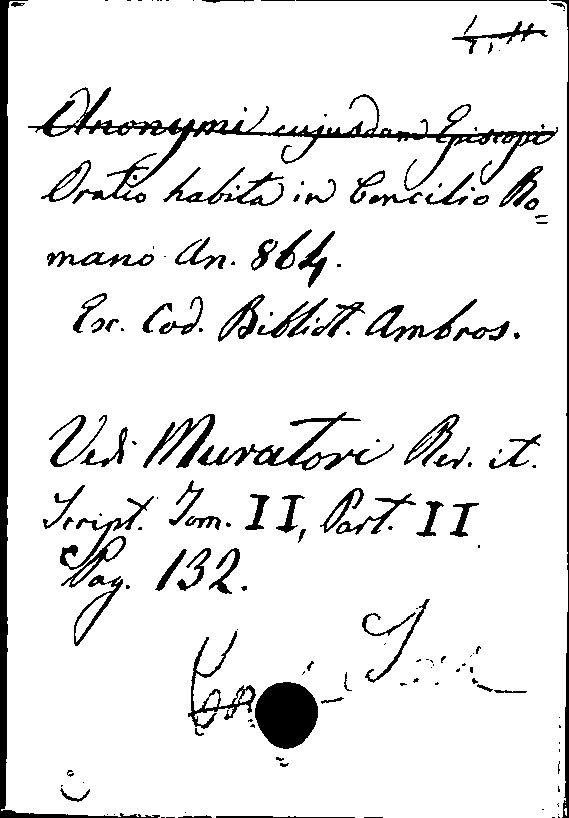 Anonymi cujusdam Episcopi
Oratio habita in Concilio Ro=
mano An. 864.
Ex. Cod. Bibliot. Ambros.
Vedi Muratori Rer. it.
Script. Tom. II, Part. II
Pag. 132.